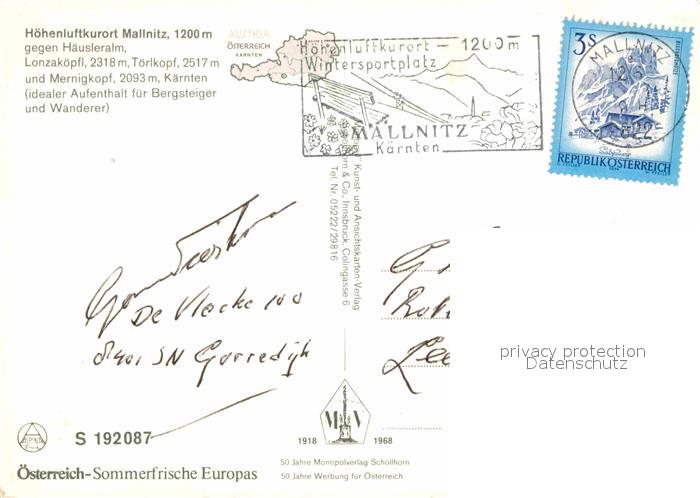 Höhenluftkurort Mallnitz, 1200 m
gegen Häusleralm,
Lonzaköpfl, 2318 m, Törlkopf, 2517 m
und Mernigkopf, 2093 m, Kärnten
(idealer Aufenthalt für Bergsteiger
und Wanderer)
AUSTRIA
ÖSTERREICH
KÄRNTEN
Höhenluftkurort – 1200 m
Wintersportplatz
MALLNITZ
Kärnten
3S
MALLNITZ
9822
REPUBLIK ÖSTERREICH
Kunst- und Ansichtskarten-Verlag
& Co., Innsbruck, Colingasse 6
Tel. Nr. 05222/29816
De Vlecke 100
8401 SN Gorredijk
privacy protection
Datenschutz
ALPNA
S 192087
1918 MV 1968
50 Jahre Monopolverlag Schöllhorn
50 Jahre Werbung für Österreich
Österreich-Sommerfrische Europas